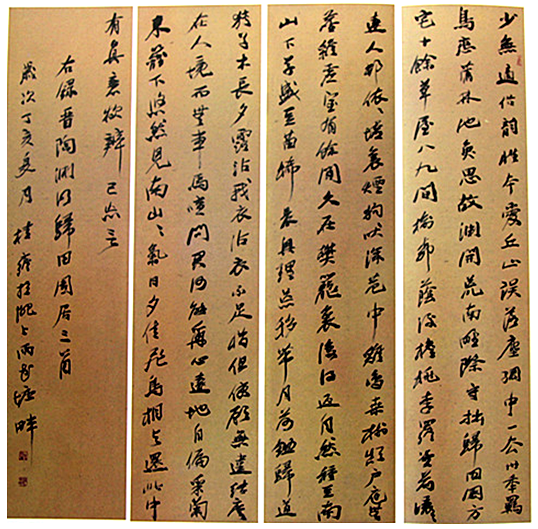 少無適俗韻性本愛丘山誤落塵網中一去卅年羈
鳥戀舊林池魚思故淵開荒南野際守拙歸田園方
宅十餘草屋八九間榆柳蔭後檐桃李羅堂前曖
遠人邨依々墟裏煙狗吠深巷中雞鳴桑樹顛戶庭無
塵雜虛室有餘閒久在樊籠裏復得返自然種豆南
山下草盛豆苗稀晨興理荒穢帶月荷鋤歸道
狹草木長夕露沾我衣沾衣不足惜但使願無違結廬
在人境而無車馬喧問君何能爾心遠地自偏采菊
東籬下悠然見南山々氣日夕佳飛鳥相與還此中
有真意欲辯已忘言
右錄晉陶淵明歸田園居三首
歲次丁亥夏月